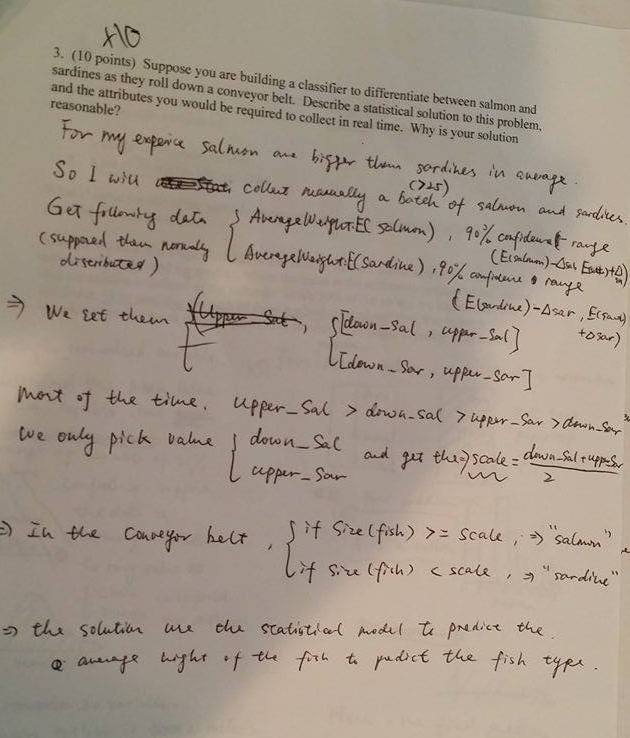 +10
3. (10 points) Suppose you are building a classifier to differentiate between salmon and
sardines as they roll down a conveyor belt. Describe a statistical solution to this problem,
and the attributes you would be required to collect in real time. Why is your solution
reasonable?
For my experice salmon are bigger than sardines in average.
So I will collect manually a batch (>25) of salmon and sardines.
Get following data { AverageWeight: E( salmon) , 90% confidence range
(E(salmon)-Δsal,
(supposed them normaly
distributed)
AverageWeight: E(Sardine) , 90% confidence range
(E(sardine)-Δsar, E(sar)
+Δsar)
⇒ We set them Upper Sal , { [down_Sal , upper_Sal]
[down_Sar, upper_Sar]
Most of the time. upper_Sal > down_sal > upper_Sar > down_Sar
we only pick value { down_Sal and get the ⇒ scale = down_Sal + upper_Sar
upper_Sar
2
⇒ In the conveyor belt , { if Size(fish) >= scale , ⇒ "salmon"
if Size(fish) < scale , ⇒ "sardine"
⇒ the solution use the statistical model to predice the
average hight of the fish to predict the fish type.